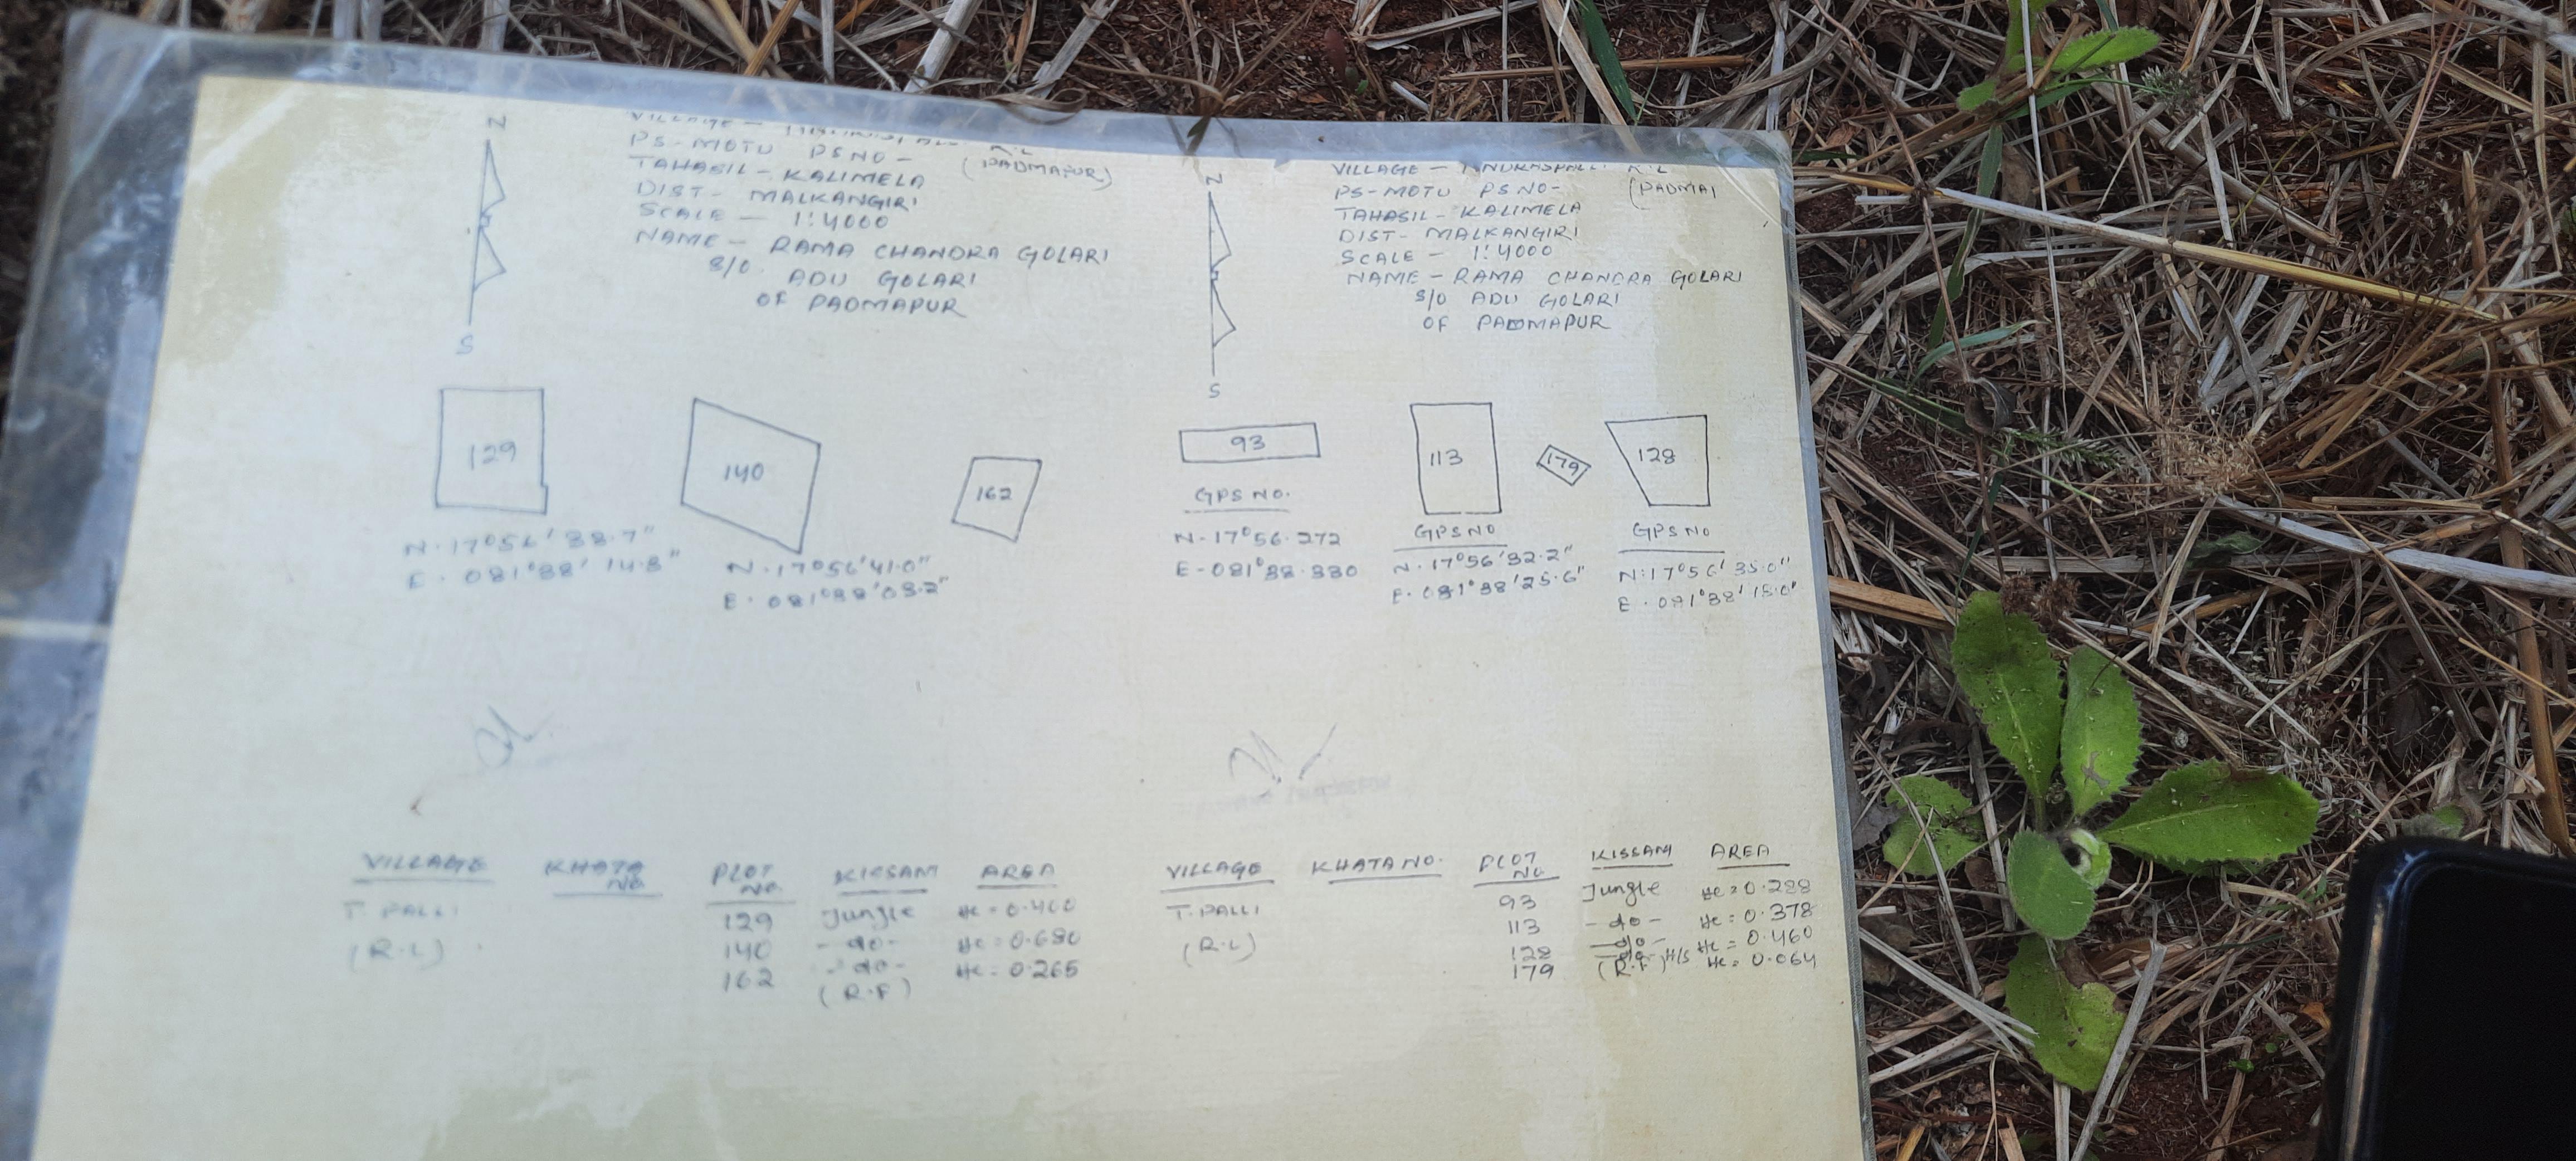 N
S
VILLAGE -
PS-MOTU PSNO-
(PADMAPUR)
TAHASIL - KALIMELA
DIST - MALKANGIRI
SCALE - 1:4000
NAME - RAMA CHANDRA GOLARI
S/O. ADU GOLARI
OF PADMAPUR
129
140
162
N. 17°56' 38.7"
E. 081°38' 14.8"
N. 17°56'41.0"
E. 081°38'08.2"
VILLAGE KHATA NO. PLOT NO. KISSAM AREA
T. PALLI 129 Jungle Hc = 0.460
(R.L) 140 -do- Hc = 0.680
162 -do- Hc = 0.265
(R.F)
N
S
VILLAGE - R.L
PS-MOTU PSNO-
TAHASIL - KALIMELA
DIST - MALKANGIRI
SCALE - 1:4000
NAME - RAMA CHANDRA GOLARI
S/O ADU GOLARI
OF PADMAPUR
93
113
179
128
GPS NO.
N-17°56.272
E-081°38.330
GPS NO
N. 17°56'32.2"
E. 081°38'25.6"
GPS NO
N:17°56' 35.0"
E. 081°38' 15.0"
VILLAGE KHATA NO. PLOT NO KISSAM AREA
T. PALLI 93 Jungle Hc = 0.288
(R.L) 113 -do- Hc = 0.378
128 -do- Hc = 0.460
179 (R.F) H/S Hc = 0.064